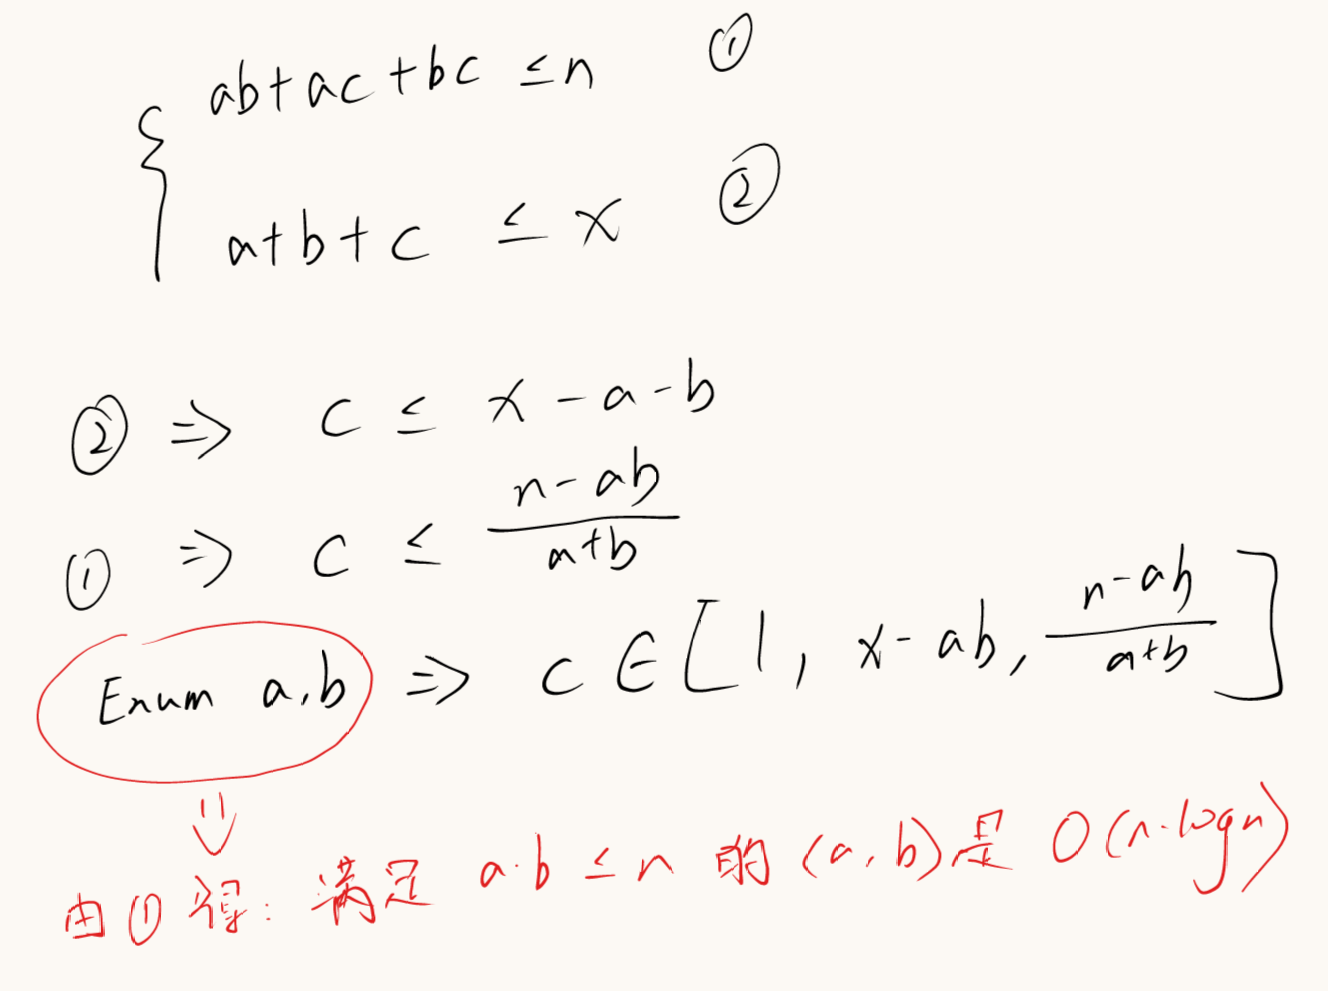 { ab+ac+bc ≤n ①
a+b+c ≤ x ②
② ⇒ c ≤ x-a-b
① ⇒ c ≤ \frac{n-ab}{a+b}
Enum a,b ⇒ c ∈ [1, x-ab, \frac{n-ab}{a+b}]
⇓
由①得: 满足 a·b ≤ n 的 (a,b)是 O(n·logn)